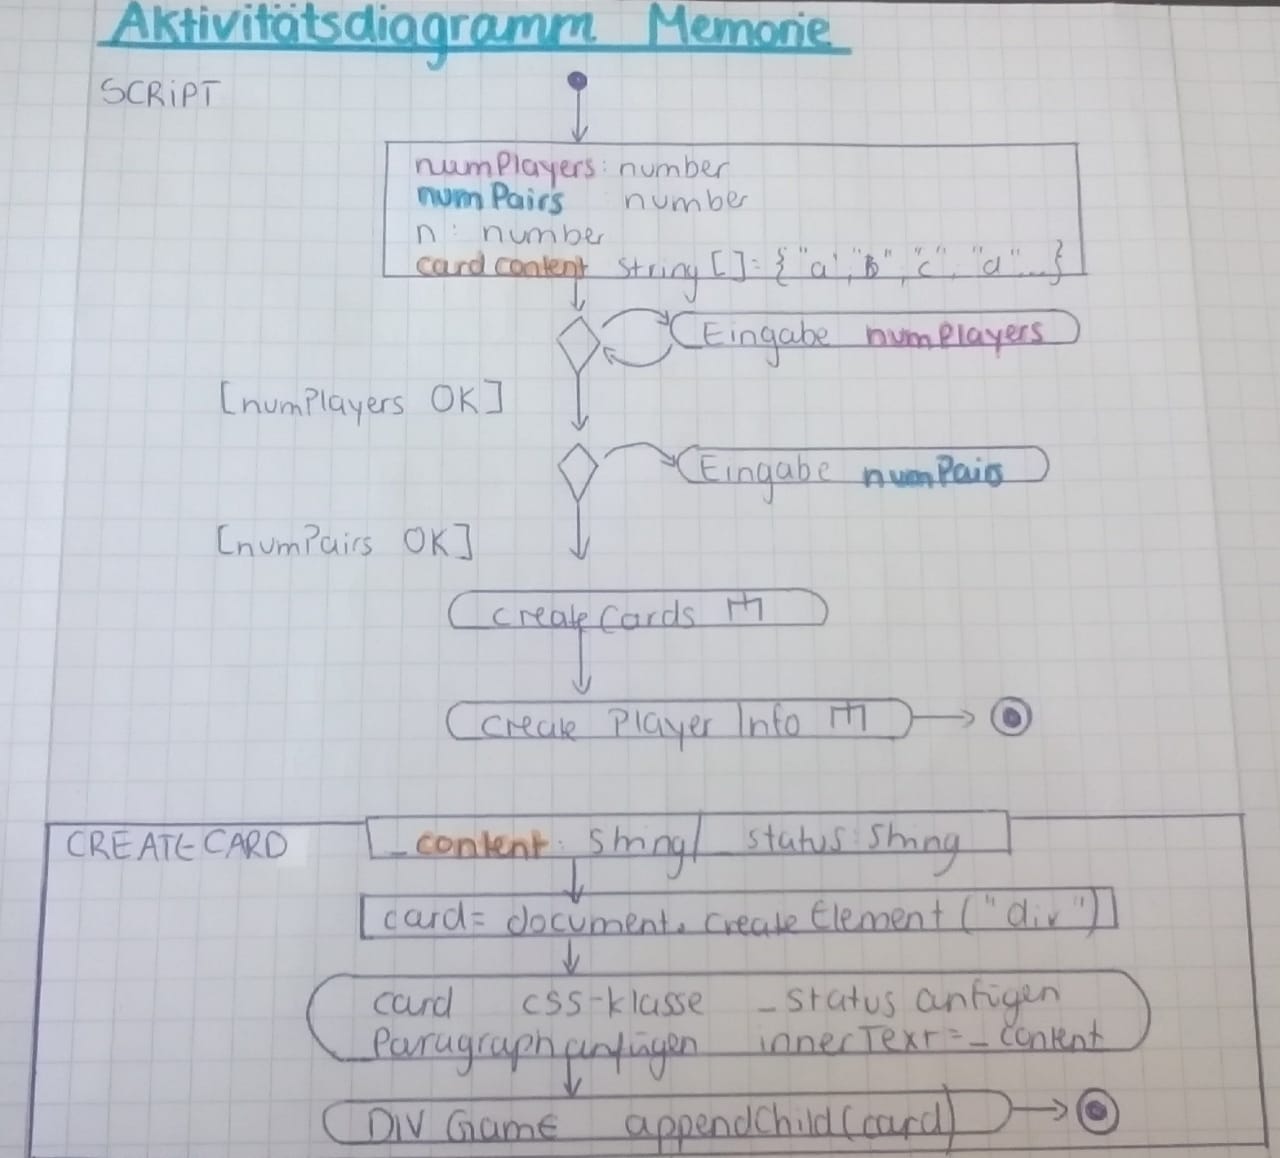 Aktivitätsdiagramm Memorie
SCRiPT
numPlayers: number
numPairs number
n: number
card content string[]={"a","b","c","d"...}
Eingabe numPlayers
[numPlayers OK]
Eingabe numPairs
[numPairs OK]
createCards
create Player Info
CREATE CARD
_content: String/ _status: String
card= document.createElement("div")
card css-klasse _status anfügen
Paragraph anfügen innerText=_content
DIV Game appendChild(card)